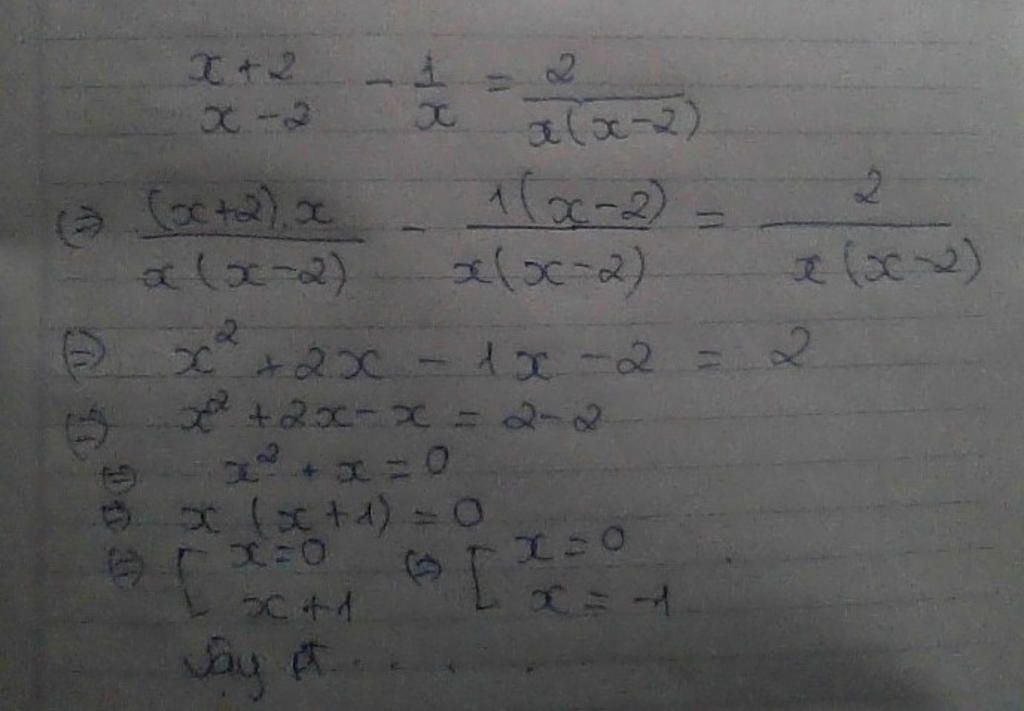 x+2/x-2 - 1/x = 2/x(x-2)
(⇒) (x+2).x/x(x-2) - 1(x-2)/x(x-2) = 2/x(x-2)
(=) x² + 2x - 1x - 2 = 2
(=) x² + 2x - x = 2-2
(=) x² + x = 0
(⇒) x (x+1) = 0
(=) [ x=0 (⇒) [ x=0
x+1 x=-1
Vậy pt . . . . .